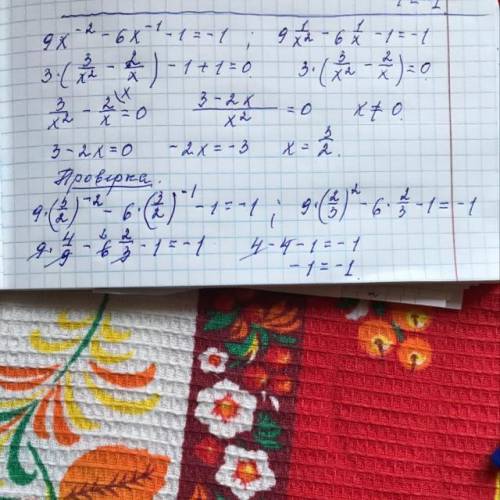 9x⁻² - 6x⁻¹ - 1 = -1 ; 9 1/x² - 6 1/x - 1 = -1
3·(3/x² - 2/x) - 1 + 1 = 0 3·(3/x² - 2/x) = 0
3/x² - 2/x \x = 0 (3 - 2x)/x² = 0 x ≠ 0
3 - 2x = 0 -2x = -3 x = 3/2.
Проверка.
9·(3/2)⁻² - 6·(3/2)⁻¹ - 1 = -1 ; 9·(2/3)² - 6·2/3 - 1 = -1
9·4/9 - 6 2/3 - 1 = -1 4 - 4 - 1 = -1
-1 = -1